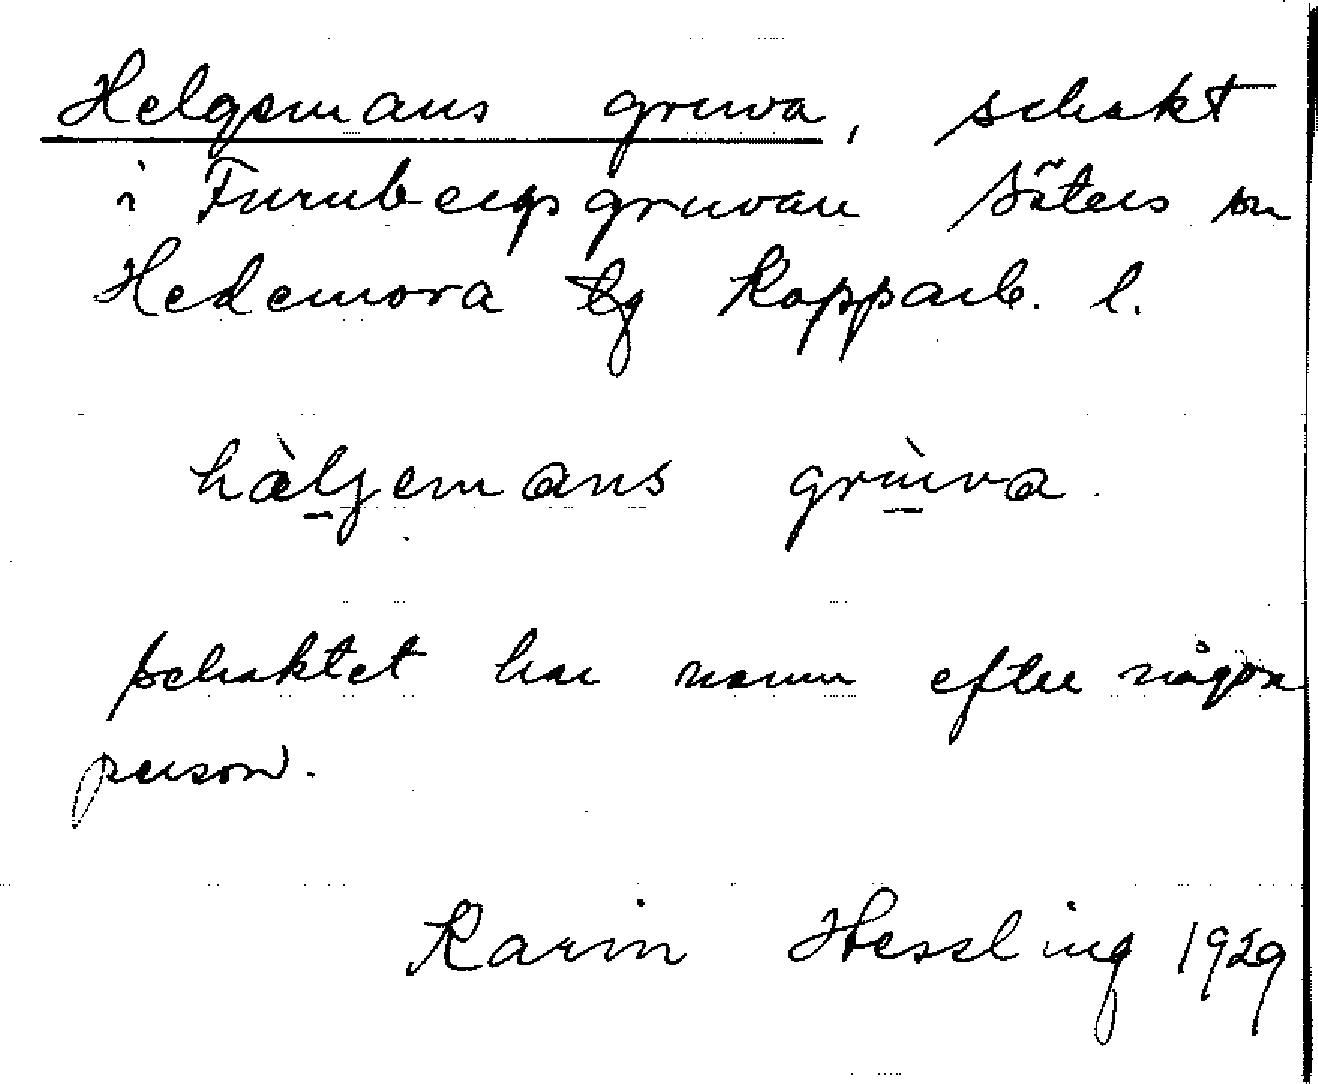 Helgemans gruva, schakt
i Furubergsgruvan Säters sn
Hedemora tg Kopparb. l.
hàlgemans grùva.
schaktet har namn efter någon
person.
Karin Hessling 1929